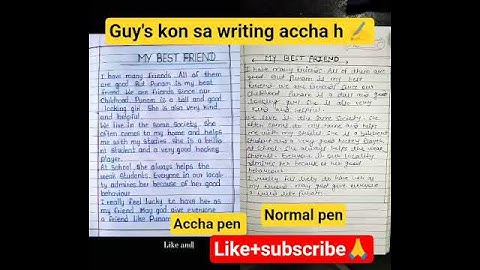 Guy's kon sa writing accha h
MY BEST FRIEND
I have many friends. All of them
are good. But Punam is my best
friend. We are friends since our
childhood. Punam is a tall and good
looking girl. She is also very kind
and helpful.
We live in the same Society. She
often comes to my home and helps
me with my studies. She is a brilli
ant Student and a very good hockey
player.
At School, she always helps the
weak Students. Everyone in our locali
ty admires her because of her good
behaviour.
I really feel lucky to have her as
my friend. May god give everyone
a friend like Punam
Accha pen
MY BEST FRIEND
I have many friends. All of them are
good. But Punam is my best
friend. We are friends since our
childhood. Punam is a tall and good
looking girl. She is also very
kind and helpful.
We live in the same Society. She
often comes to my home and helps
me with my studies. She is a
Student and a very good hockey player.
At school, she always helps the weak
students. Everyone in our locality
admires her because of her good
behaviour.
I really feel lucky to have her as
my friend. May god give everyone
a friend like Punam.
Normal pen
Like and
Like+subscribe